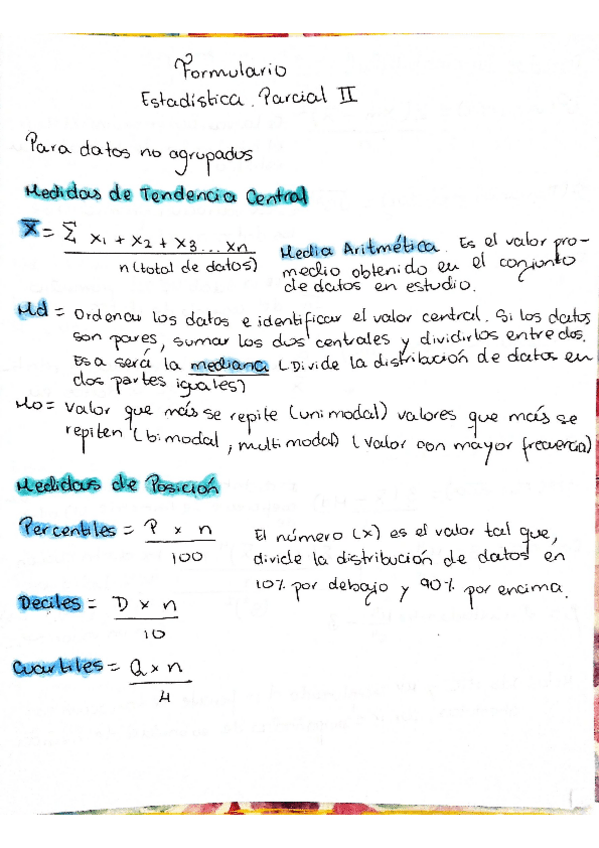 Formulario
Estadística. Parcial II
Para datos no agrupados
Medidas de Tendencia Central
X̄ = Σ x₁ + x₂ + x₃ ... xn
n (total de datos)
Media Aritmética. Es el valor pro-
medio obtenido en el conjunto
de datos en estudio.
Md = Ordenar los datos e identificar el valor central. Si los datos
son pares, sumar los dos centrales y dividirlos entre dos.
Esa será la mediana (Divide la distribución de datos en
dos partes iguales)
Mo = Valor que más se repite (unimodal) valores que más se
repiten (bimodal, multimodal) (Valor con mayor frecuencia)
Medidas de Posición
Percentiles = P x n
100
El número (x) es el valor tal que,
divide la distribución de datos en
10% por debajo y 90% por encima.
Deciles = D x n
10
Cuartiles = Q x n
4